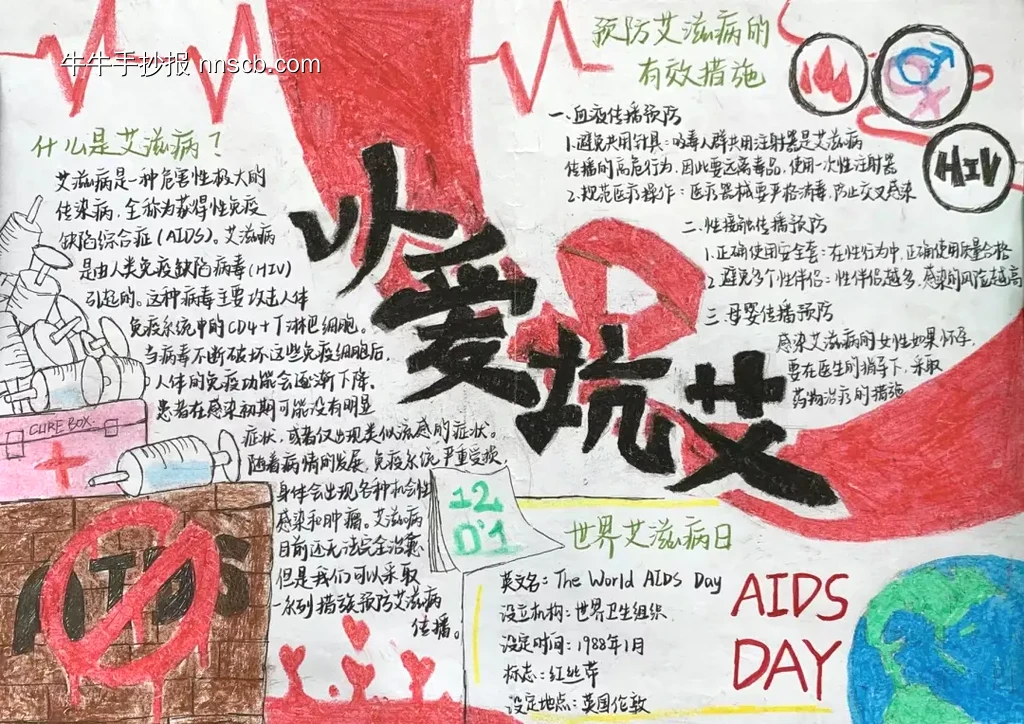 牛牛手抄报 nnscb.com
什么是艾滋病？
艾滋病是一种危害性极大的
传染病，全称为获得性免疫
缺陷综合症(AIDS)。艾滋病
是由人类免疫缺陷病毒(HIV)
引起的。这种病毒主要攻击人体
免疫系统中的CD4+T淋巴细胞。
当病毒不断破坏这些免疫细胞后，
人体的免疫功能会逐渐下降。
患者在感染初期可能没有明显
症状，或者仅出现类似流感的症状。
随着病情的发展，免疫系统严重受损，
身体会出现各种机会性
感染和肿瘤。艾滋病
目前还无法完全治愈
但是我们可以采取
一系列措施预防艾滋病
传播。
CURE BOX.
AIDS
以爱抗艾
预防艾滋病的
有效措施
一.血液传播预防
1.避免共用针具：吸毒人群共用注射器是艾滋病
传播的高危行为，因此要远离毒品，使用一次性注射器
2.规范医疗操作：医疗器械要严格消毒，防止交叉感染
二.性接触传播预防
1.正确使用安全套：在性行为中，正确使用质量合格
2.避免多个性伴侣：性伴侣越多，感染的风险越高
三.母婴传播预防
感染艾滋病的女性如果怀孕，
要在医生的指导下，采取
药物治疗的措施
HIV
12
01
世界艾滋病日
英文名：The World AIDS Day
设立机构：世界卫生组织.
设定时间：1988年1月
标志：红丝带
设定地点：英国伦敦
AIDS
DAY